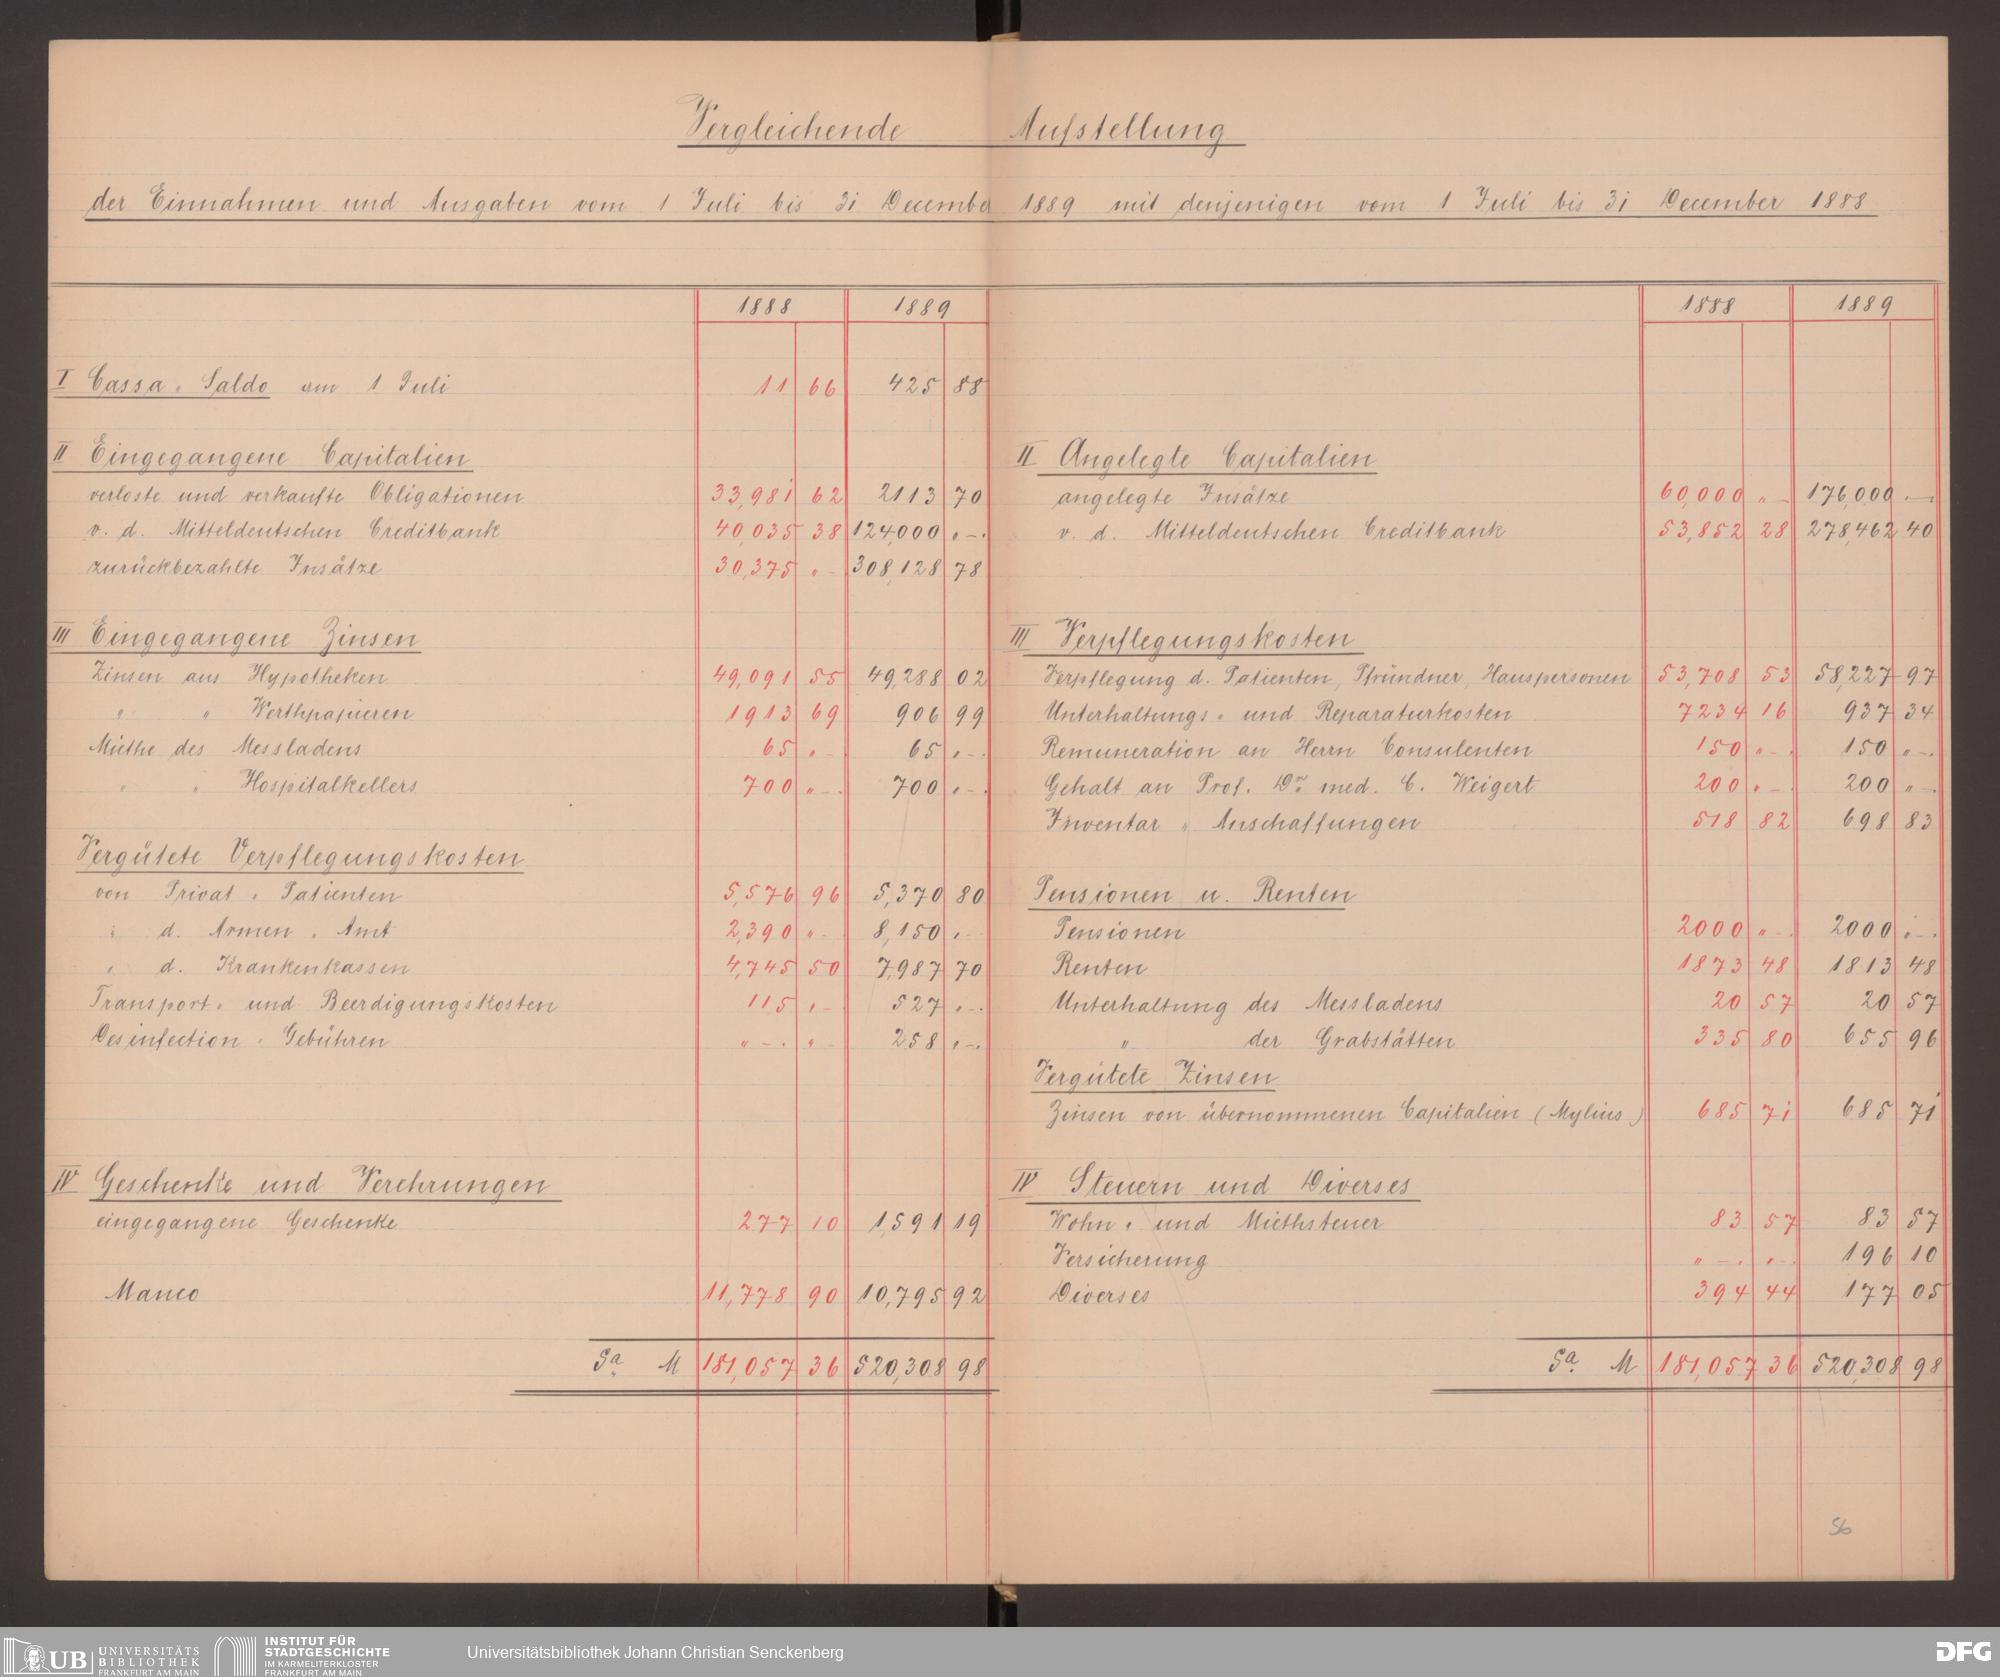 Vergleichende Aufstellung
der Einnahmen und Ausgaben vom 1 Juli bis 31 December 1889 mit denjenigen vom 1 Juli bis 31 December 1888
1888 1889
I Cassa " Saldo am 1 Juli 11 66 425 88
II Eingegangene Capitalien
verloste und verkaufte Obligationen 33,981 62 2113 70
v. d. Mitteldeutschen Creditbank 40,035 38 124,000 " -.
zurückbezahlte Insätze 30,375 " - 308,128 78
III Eingegangene Zinsen
Zinsen aus Hypotheken 49,091 55 49,288 02
" " Werthpapieren 1913 69 906 99
Miethe des Messladens 65 " - 65 " -.
" " Hospitalkellers 700 " -. 700 " -.
Vergütete Verpflegungskosten
von Privat " Patienten 5,576 96 5,370 80
" d. Armen " Amt 2,390 " - 8,150 " -
" d. Krankenkassen 4,745 50 7,987 70
Transport " und Beerdigungskosten 115 " - 527 " -.
Desinfection " Gebühren " -. " - 258 " -.
IV Geschenke und Verehrungen
eingegangene Geschenke 277 10 1,591 19
Manco 11,778 90 10,795 92
Sa. M 181,057 36 520,308 98
1888 1889
II Angelegte Capitalien
angelegte Insätze 60,000 " - 176,000 . -
v. d. Mitteldeutschen Creditbank 53,852 28 278,462 40
III Verpflegungskosten
Verpflegung d. Patienten, Pfründner, Hauspersonen 53,708 53 58,227 97
Unterhaltungs " und Reparaturkosten 7234 16 937 34
Remuneration an Herrn Consulenten 150 " -. 150 " -.
Gehalt an Prof. Dr. med. C. Weigert 200 " -. 200 " -.
Inventar " Anschaffungen 518 82 698 83
Pensionen u. Renten
Pensionen 2000 " -. 2000 " -.
Renten 1873 48 1813 48
Unterhaltung des Messladens 20 57 20 57
" der Grabstätten 335 80 655 96
Vergütete Zinsen
Zinsen von übernommenen Capitalien (Mylius) 685 71 685 71
IV Steuern und Diverses
Wohn " und Miethsteuer 83 57 83 57
Versicherung " -. " -. 196 10
Diverses 394 44 177 05
Sa. M 181,057 36 520,308 98
56
UB UNIVERSITÄTS
BIBLIOTHEK
FRANKFURT AM MAIN
INSTITUT FÜR
STADTGESCHICHTE
IM KARMELITERKLOSTER
FRANKFURT AM MAIN
Universitätsbibliothek Johann Christian Senckenberg
DFG